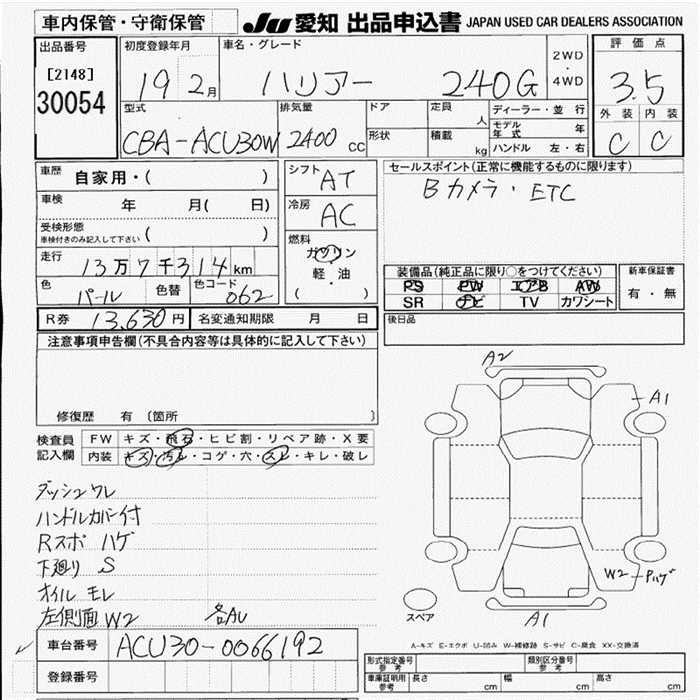 車内保管・守衛保管
JU 愛知 出品申込書 JAPAN USED CAR DEALERS ASSOCIATION
出品番号
[2148]
30054
初度登録年月
19 2月
車名・グレード
ハリアー 240G
2WD
・
4WD
評価点
3.5
外装 内装
C C
型式
CBA-ACU30W
排気量
2400 CC
ドア
形状
定員 人
積載 kg
ディーラー・並行
モデル年式 年
ハンドル 左・右
車歴 自家用・( )
車検 年 月( 日)
受検形態
車検付きのみ記入して下さい ( )
走行 13万7千314km
色 パール 色替 色コード 062
シフト AT
冷房 AC
燃料
ガソリン
軽・油
( )
セールスポイント(正常に機能するものに限ります)
Bカメラ・ETC
装備品(純正品に限り○をつけてください)
PS PW エアB AW
SR ナビ TV カワシート
新車保証書
有・無
後日品
R券 13,630円 名変通知期限 月 日
注意事項申告欄(不具合内容等は具体的に記入して下さい)
修復歴 有 〔箇所 〕
検査員
記入欄
FW キズ・飛石・ヒビ割・リペア跡・X要
内装 キズ・汚れ・コゲ・穴・スレ・キレ・破レ
ダッシュワレ
ハンドルカバー付
Rスポ ハゲ
下廻り S
オイルモレ
左側面W2 各AU
A2
A1
W2-Pハゲ
A1
スペア
A-キズ E-エクボ U-凹み W-補修跡 S-サビ C-腐食 XX-交換済
車台番号 ACU30-0066192
登録番号
形式指定番号
参考
類別区分番号
参考
車庫証明用
参考
長さ cm 幅 cm 高さ cm